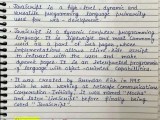 → JavaScript is a high-level, dynamic and
versatile programming language primarily
used for web development.
→ JavaScript is a dynamic computer programming
language. It is lightweight and most commonly
used as a part of web pages, whose
implementations allows client side script
to interact with the user and make
dynamic pages. It is an interpreted programming
language with object-oriented capabilities.
→ It was created by Brendan Eich in 1995
while he was working at Netscape Communications
Corporation. Initially it was named "Mocha"
and later "LiveScript" before finally being
called "JavaScript"